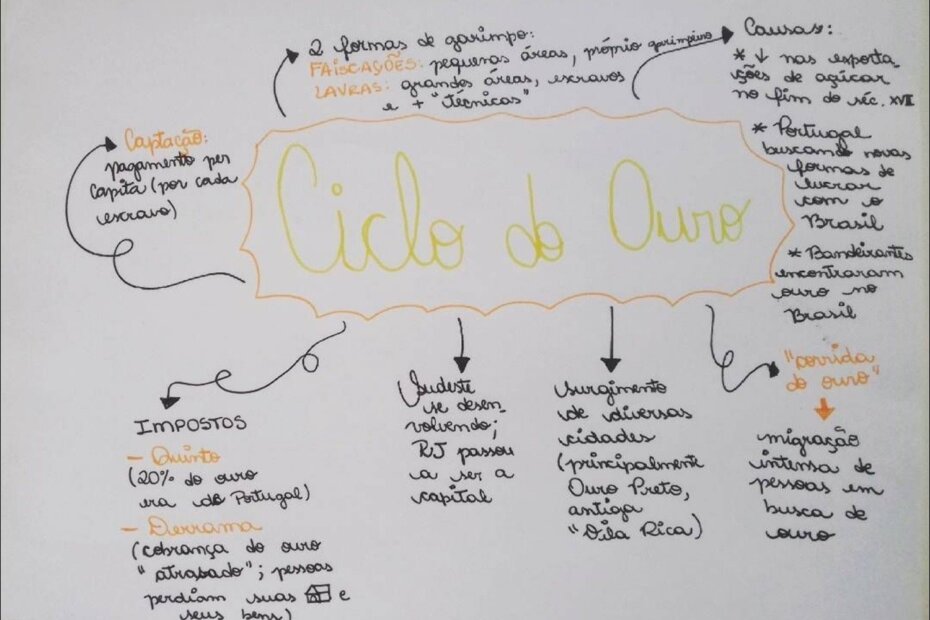 2 formas de garimpo:
FAISCAÇÕES: pequenas áreas, próprio garimpeiro
LAVRAS: grandes áreas, escravos
e + "técnicas"
Causas:
* ↓ nas exporta-
ções de açúcar
no fim do séc. XVII
* Portugal
buscando novas
formas de
lucrar
com o
Brasil
* Bandeirantes
encontraram
ouro no
Brasil
Captação:
pagamento per
capita (por cada
escravo)
Ciclo do Ouro
IMPOSTOS
- Quinto
(20% do ouro
era de Portugal)
- Derrama
(cobrança do ouro
"atrasado"; pessoas
perdiam suas e
seus bens)
Sudeste
se desen-
volvendo;
RJ passou
a ser a
capital
surgimento
de diversas
cidades
(principalmente
Ouro Preto,
antiga
"Vila Rica)
"corrida
do ouro"
migração
intensa de
pessoas em
busca de
ouro